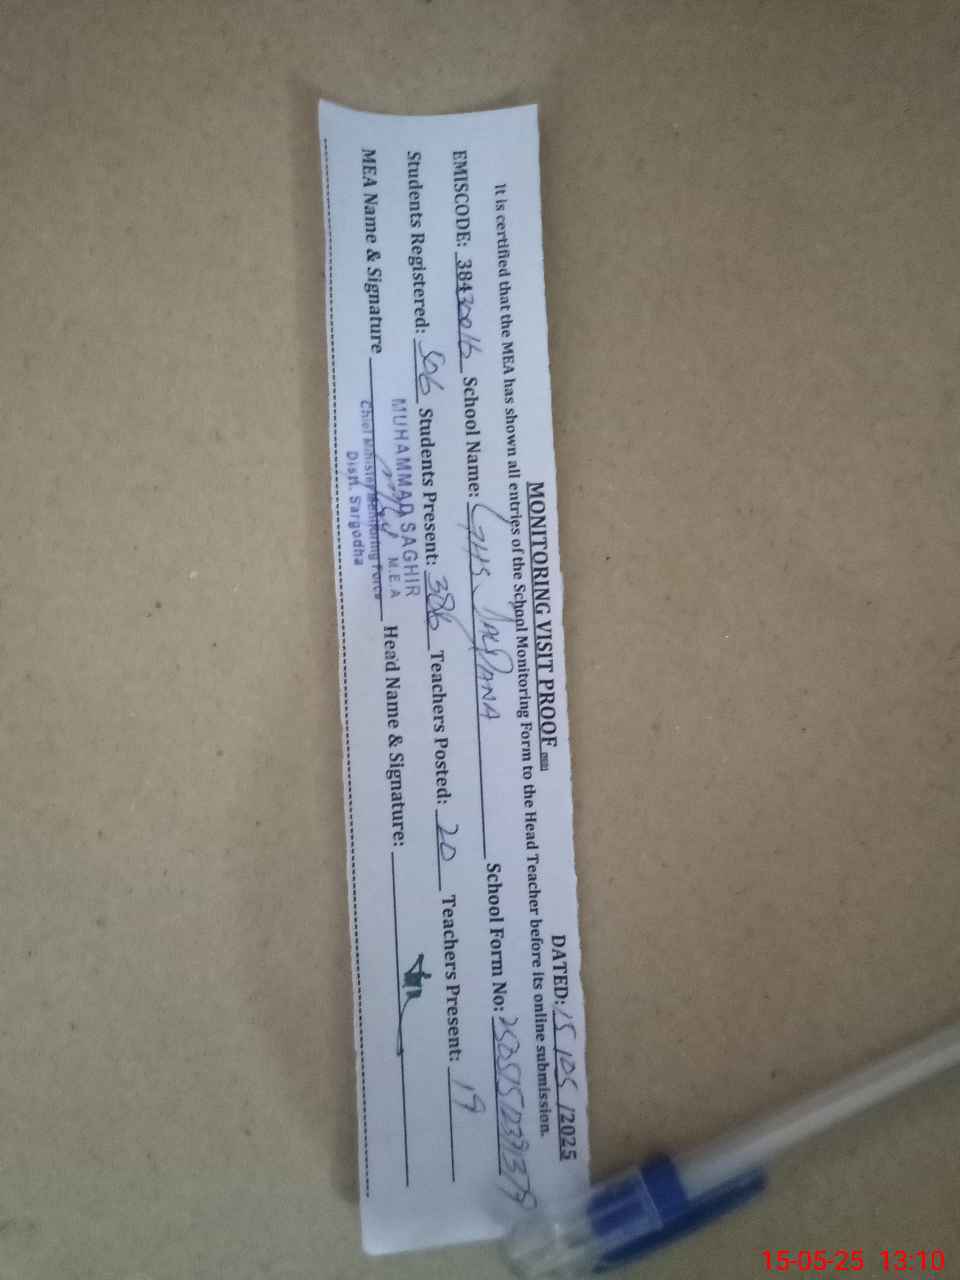 MONITORING VISIT PROOF
DATED: 15 / 05 / 2025
It is certified that the MEA has shown all entries of the School Monitoring Form to the Head Teacher before its online submission.
EMISCODE: 38430016 School Name: GHS, School Form No:
Students Registered: 506 Students Present: 386 Teachers Posted: 20 Teachers Present: 19
MEA Name & Signature Head Name & Signature:
MUHAMMAD SAGHIR
M.E.A
Chief Minister Monitoring Force
Distt. Sargodha
15-05-25 13:10